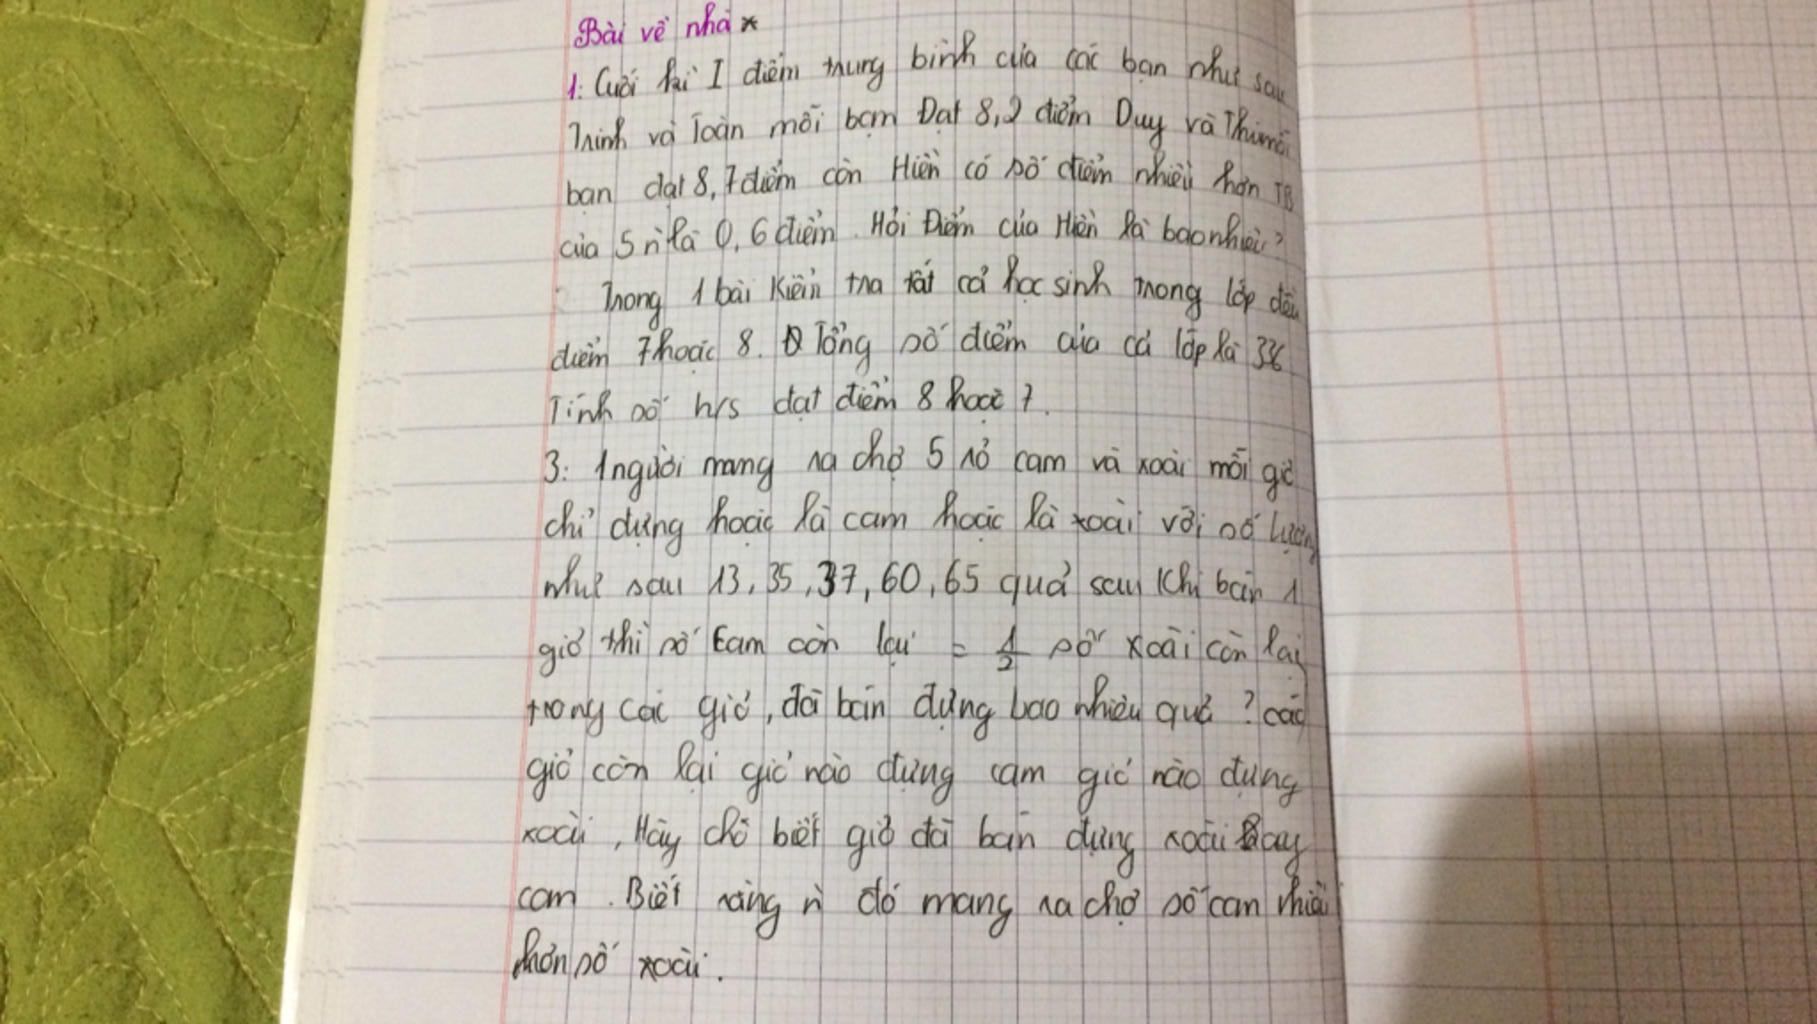 Bài về nhà *
1: Cuối kì I điểm trung bình của các bạn như sau
Trinh và Toàn mỗi bạn Đạt 8,2 điểm Duy và Thi mỗi
bạn đạt 8,7 điểm còn Hiền có số điểm nhiều hơn TB
của 5 n là 0,6 điểm. Hỏi Điểm của Hiền là bao nhiêu?
Trong 1 bài kiểm tra tất cả học sinh trong lớp đều
điểm 7 hoặc 8. Tổng số điểm của cả lớp là 336
Tính số h/s đạt điểm 8 hoặc 7.
3: 1 người mang ra chợ 5 rỏ cam và xoài mỗi giỏ
chỉ đựng hoặc là cam hoặc là xoài với số lượng
như sau 13, 35, 37, 60, 65 quả sau khi bán 1
giỏ thì số cam còn lại = 1/2 số xoài còn lại
trong các giỏ, đã bán đựng bao nhiêu quả? các
giỏ còn lại giỏ nào đựng cam giỏ nào đựng
xoài, Hãy cho biết giỏ đã bán đựng xoài hay
cam. Biết rằng n đó mang ra chợ số cam nhiều
hơn số xoài.